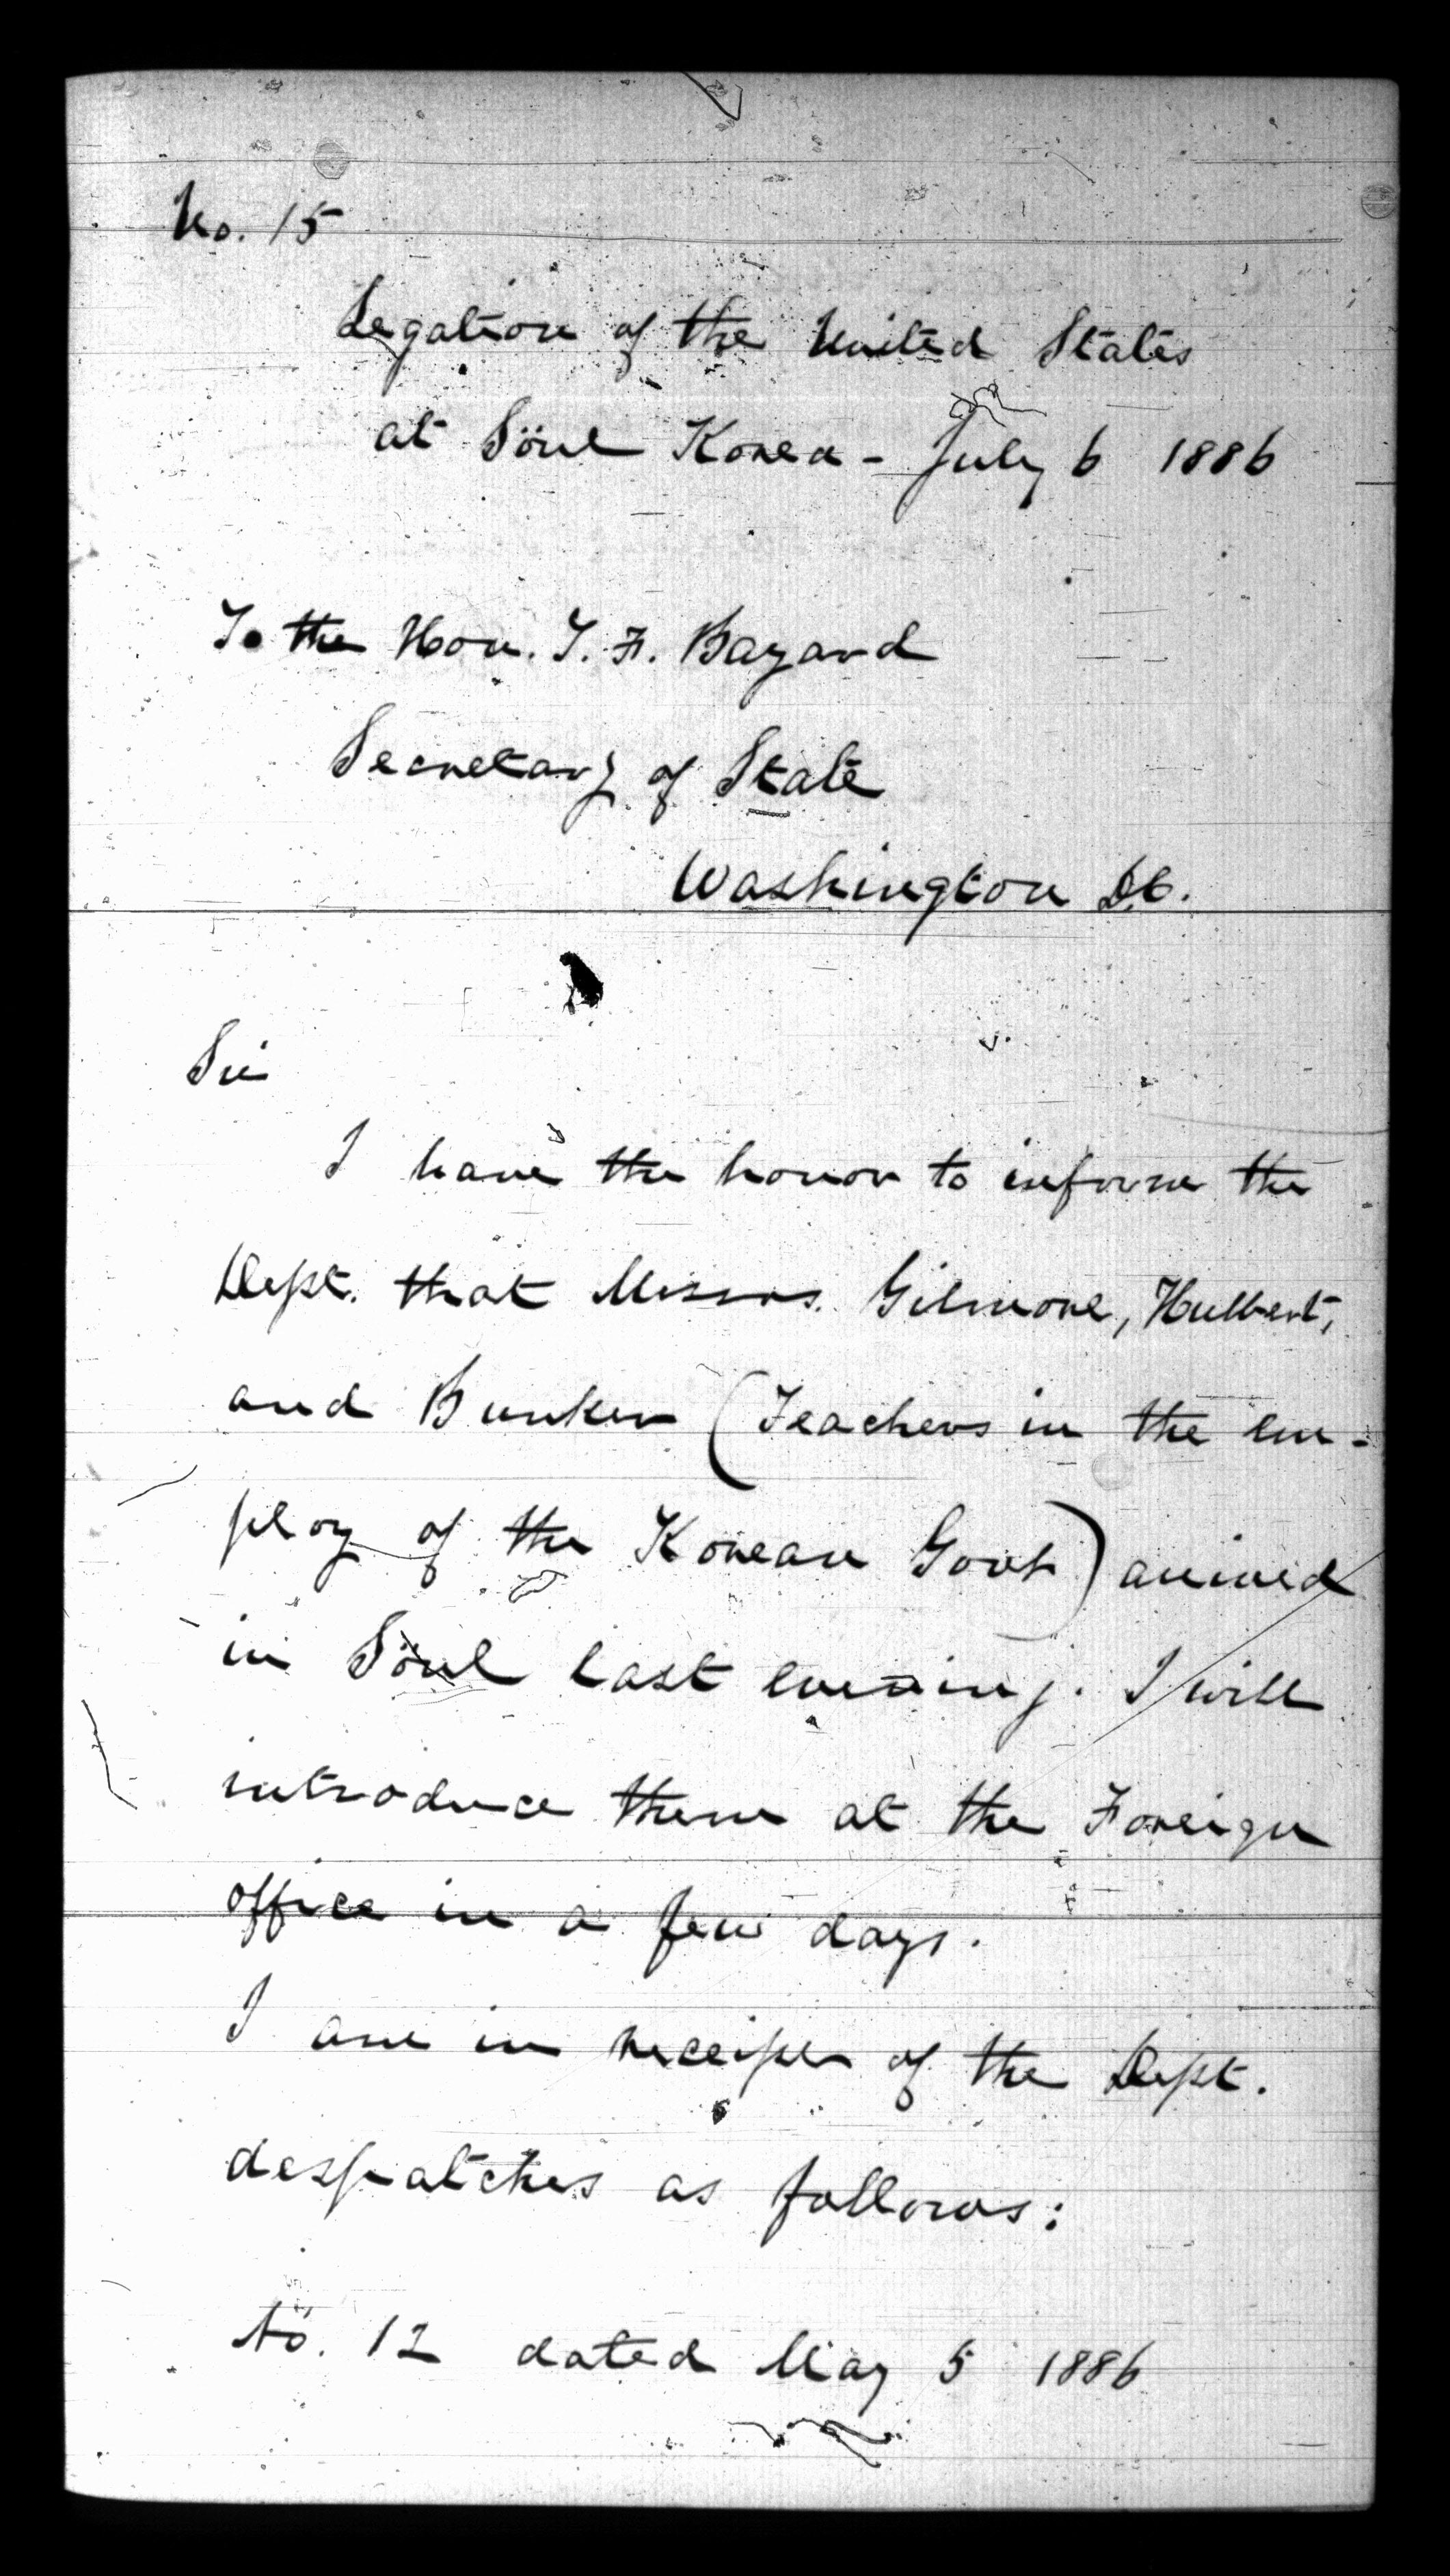 No. 15
Legation of the United States
at Söul Korea - July 6 1886
To the Hon. T. F. Bayard
Secretary of State
Washington D.C.
Sir
I have the honor to inform the
Dept. that Messrs. Gilmore, Hulbert,
and Bunker (Teachers in the em-
ploy of the Korean Govt) arrived
in Söul last evening. I will
introduce them at the Foreign
office in a few days.
I am in receipt of the Dept.
despatches as follows:
No. 12 dated May 5 1886